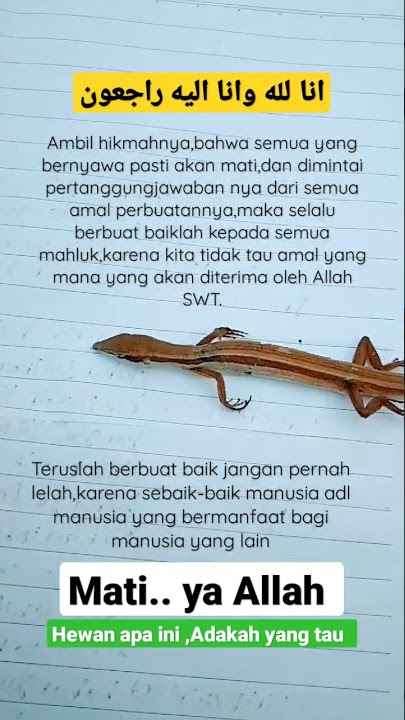 انا لله وانا اليه راجعون
Ambil hikmahnya,bahwa semua yang
bernyawa pasti akan mati,dan dimintai
pertanggungjawaban nya dari semua
amal perbuatannya,maka selalu
berbuat baiklah kepada semua
mahluk,karena kita tidak tau amal yang
mana yang akan diterima oleh Allah
SWT.
Teruslah berbuat baik jangan pernah
lelah,karena sebaik-baik manusia adl
manusia yang bermanfaat bagi
manusia yang lain
Mati.. ya Allah
Hewan apa ini ,Adakah yang tau